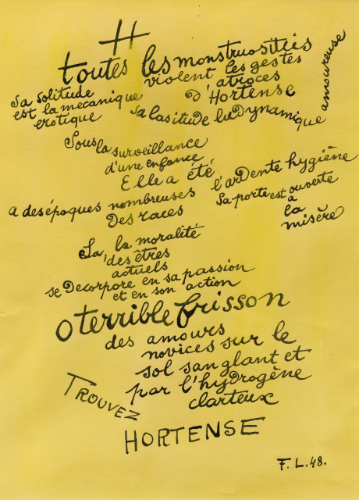 H
toutes les monstruosités
violent les gestes
d'atroces
Hortense
Sa solitude
est la mécanique
erotique
Sa lasitude la Dynamique
amoureuse
Sous la surveillance
d'une enfance
Elle a été
l'ardente hygiène
a des époques nombreuses
Des races
Sa porte est ouverte
à
la
misère
Là, la moralité
des êtres
actuels
se Decorpore en sa passion
et en son action
O terrible frisson
des amours
novices sur le
sol sanglant et
par l'hydrogène
clarteux
TROUVEZ
HORTENSE
F.L.48.